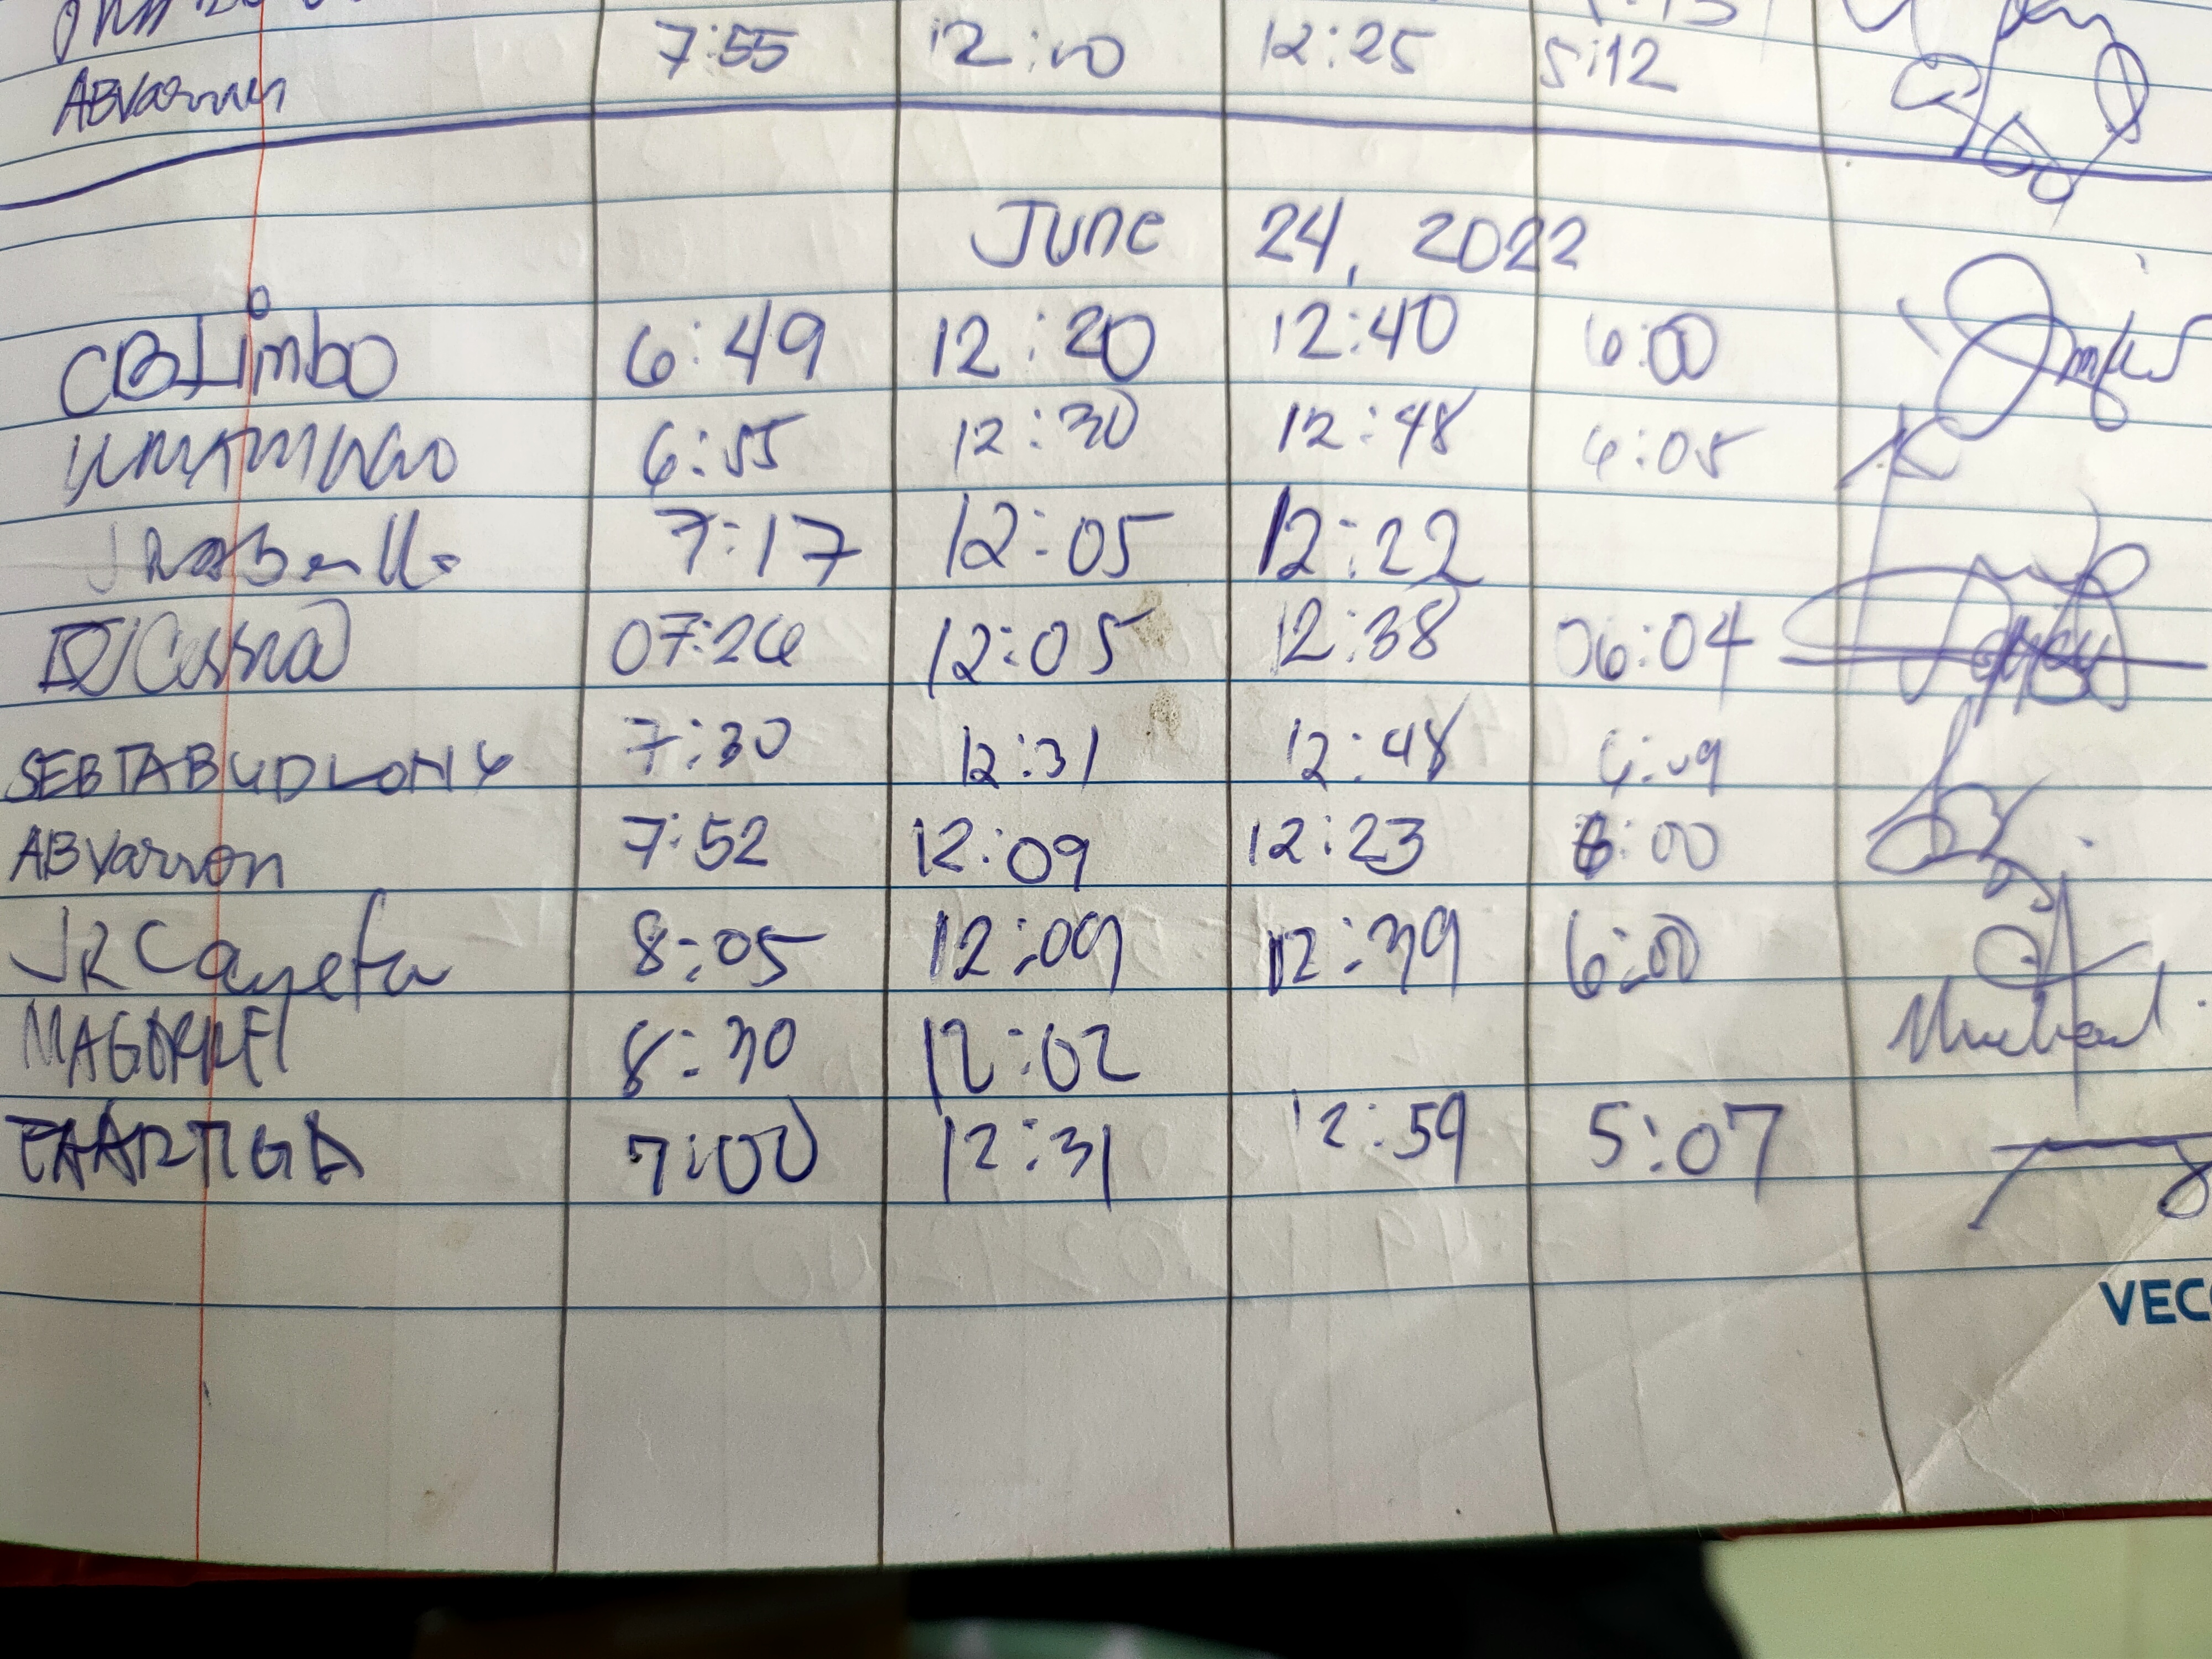 7:55 12:10 12:25 5:12
ABVarron
June 24, 2022
CBLimbo 6:49 12:20 12:40 6:00
6:55 12:30 12:48 6:05
7:17 12:05 12:22
07:26 12:05 12:38 06:04
SEBTABUDLONG 7:30 12:31 12:48 6:09
ABVarron 7:52 12:09 12:23 6:00
JRCayeta 8:05 12:09 12:39 6:00
8:30 12:02
EAARTIGA 7:00 12:31 12:59 5:07